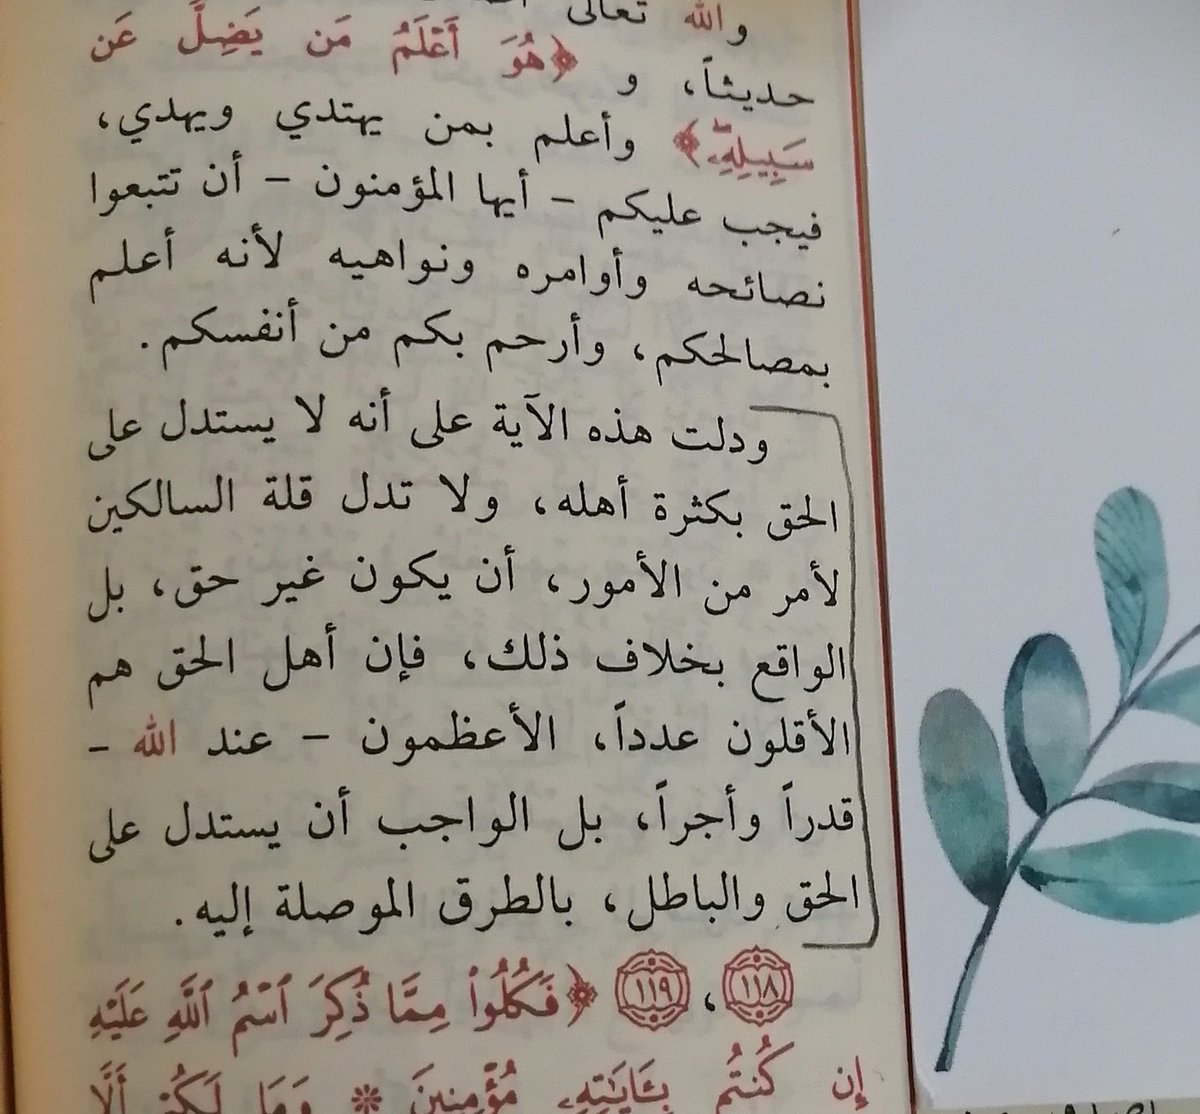 والله تعالى
حديثاً، و ﴿هُوَ أَعْلَمُ مَن يَضِلُّ عَن
سَبِيلِهِۦ﴾ وأعلم بمن يهتدي ويهدي،
فيجب عليكم – أيها المؤمنون – أن تتبعوا
نصائحه وأوامره ونواهيه لأنه أعلم
بمصالحكم، وأرحم بكم من أنفسكم.
ودلت هذه الآية على أنه لا يستدل على
الحق بكثرة أهله، ولا تدل قلة السالكين
لأمر من الأمور، أن يكون غير حق، بل
الواقع بخلاف ذلك، فإن أهل الحق هم
الأقلون عدداً، الأعظمون – عند الله –
قدراً وأجراً، بل الواجب أن يستدل على
الحق والباطل، بالطرق الموصلة إليه.
١١٨، ١١٩ ﴿فَكُلُوا۟ مِمَّا ذُكِرَ ٱسْمُ ٱللَّهِ عَلَيْهِ
إِن كُنتُم بِـَٔايَـٰتِهِۦ مُؤْمِنِينَ * وَمَا لَكُمْ أَلَّا